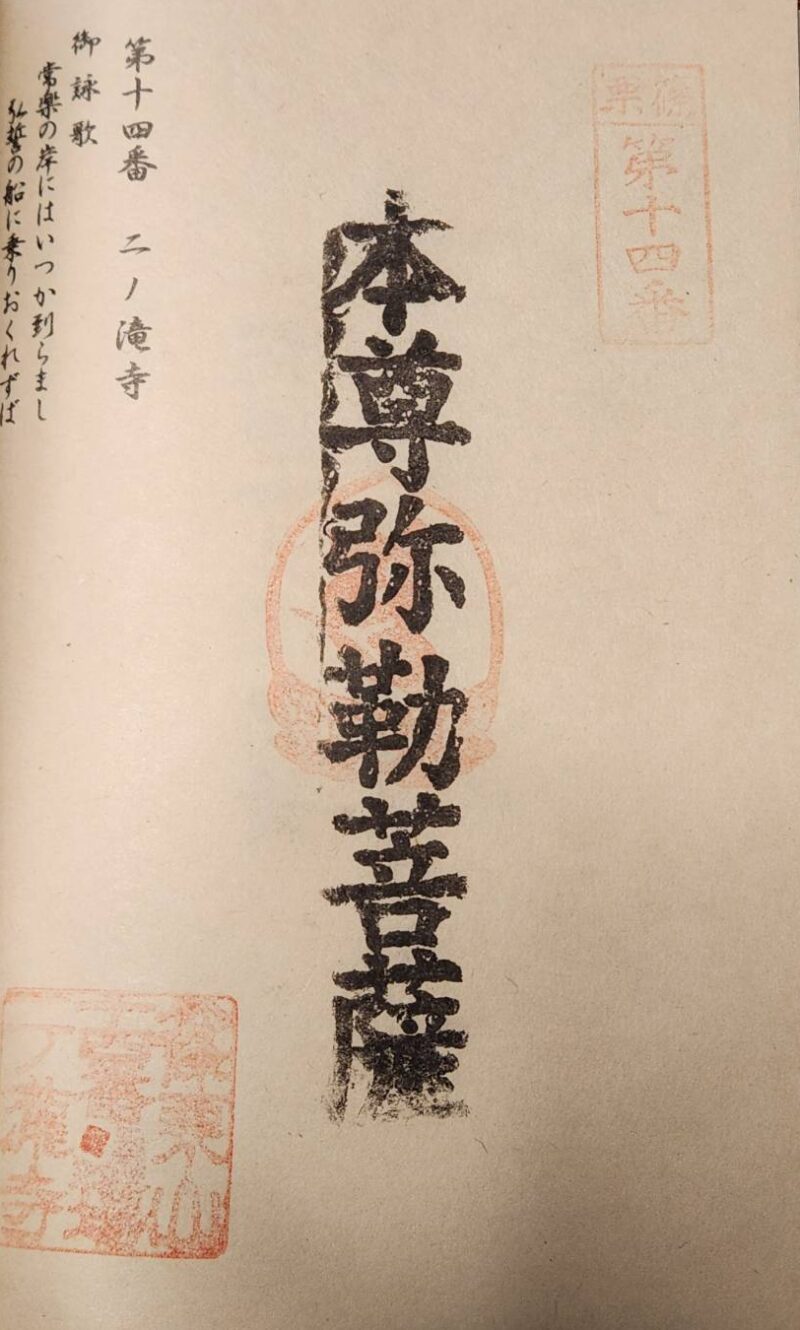 篠栗
第十四番
本尊弥勒菩薩
第十四番 二ノ滝寺
御詠歌
常楽の岸にはいつか到らまし
弘誓の船に乗りおくれずば